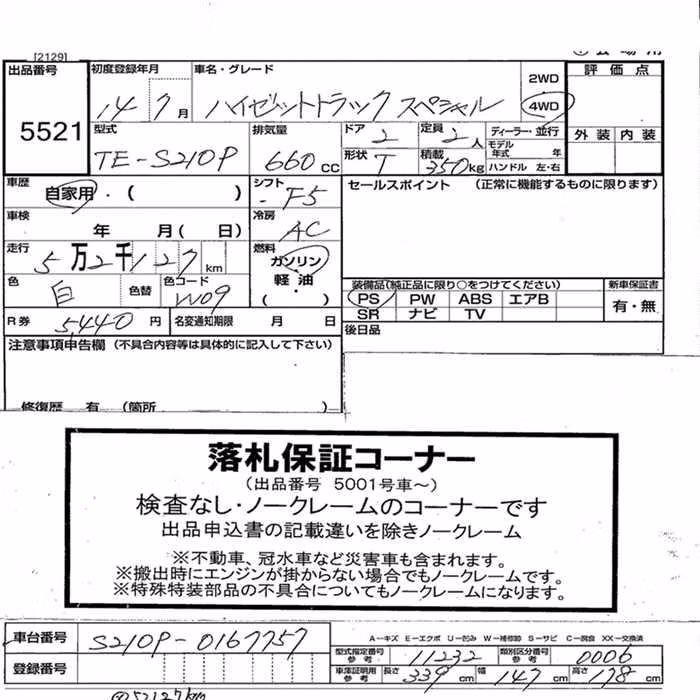 [2129]
出品番号 初度登録年月 車名・グレード 2WD 評価点
5521 14 7月 ハイゼットトラック スペシャル 4WD
型式 排気量 ドア 定員 ディーラー・並行 外装 内装
TE-S210P 660cc 2 2人 モデル年式 年
形状 T 積載 350kg ハンドル 左・右
車歴 自家用・( ) シフト F5 セールスポイント (正常に機能するものに限ります)
車検 年 月( 日) 冷房 AC
走行 5万2千127km 燃料 ガソリン
軽油
( )
色 白 色替 色コード W09 装備品(純正品に限り○をつけてください) 新車保証書
PS PW ABS エアB 有・無
SR ナビ TV
R券 5,440円 名変通知期限 月 日 後日品
注意事項申告欄 (不具合内容等は具体的に記入して下さい)
修復歴 有 (箇所 )
落札保証コーナー
(出品番号 5001号車~)
検査なし・ノークレームのコーナーです
出品申込書の記載違いを除きノークレーム
※不動車、冠水車など災害車も含まれます。
※搬出時にエンジンが掛からない場合でもノークレームです。
※特殊特装部品の不具合についてもノークレームになります。
車台番号 S210P-0167757 A-キズ E-エクボ U-凹み W-補修跡 S-サビ C-腐食 XX-交換済
型式指定番号 参考 11232 類別区分番号 参考 0006
登録番号 車庫証明用 参考 長さ 339cm 幅 147cm 高さ 178cm